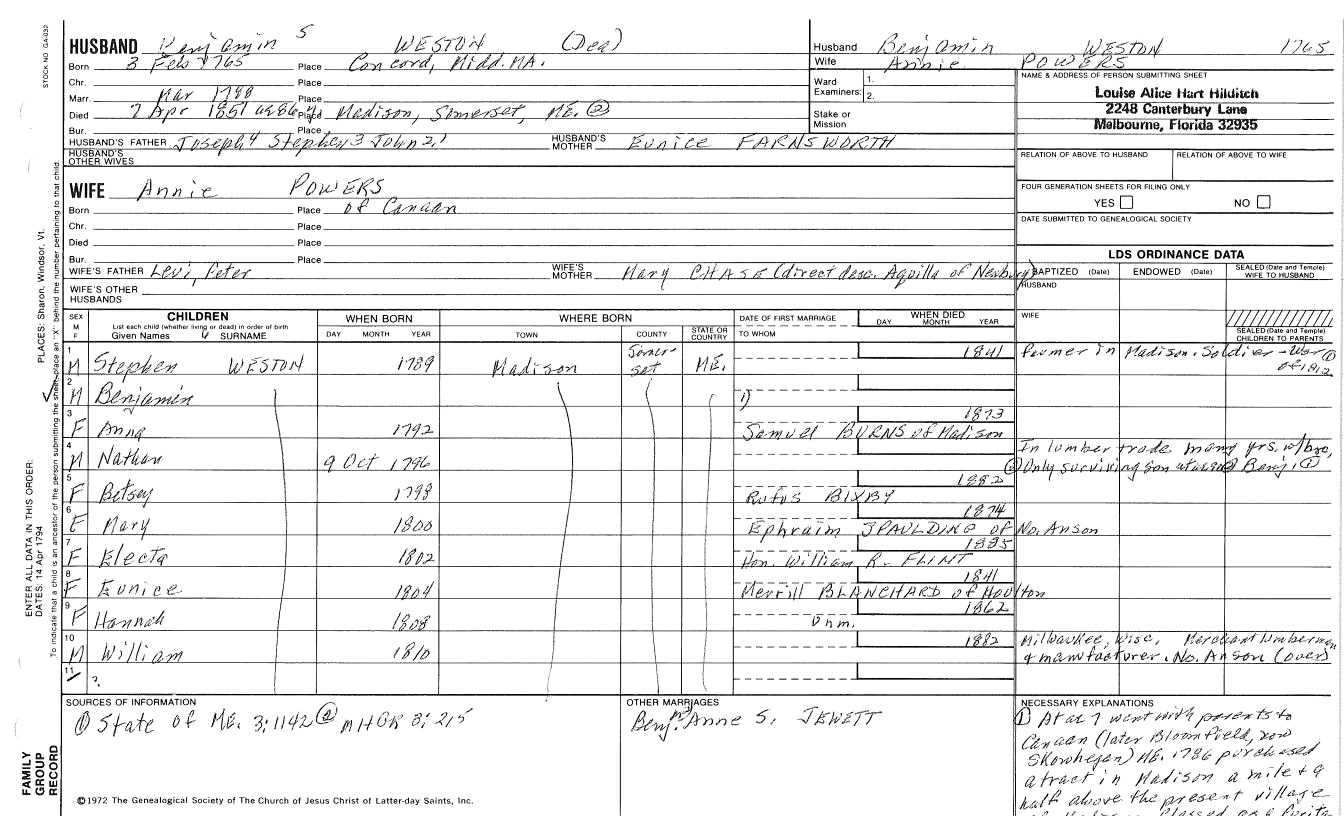 STOCK NO. GA-032
HUSBAND Benjamin 5 WESTON (Dea)
Born 3 Feb 1765 Place Concord, Midd. MA.
Chr. Place
Marr. Mar 1788 Place
Died 7 Apr 1851 ae 86 y Place Madison, Somerset, ME. ②
Bur. Place
HUSBAND'S FATHER Joseph 4 Stephen 3 John 2, 1 HUSBAND'S MOTHER Eunice FARNSWORTH
HUSBAND'S OTHER WIVES
WIFE Annie POWERS
Born Place of Canaan
Chr. Place
Died Place
Bur. Place
WIFE'S FATHER Levi, Peter WIFE'S MOTHER Mary CHASE (direct desc. Aquilla of Newbury)
WIFE'S OTHER HUSBANDS
Husband Benjamin WESTON 1765
Wife Annie POWERS
Ward Examiners: 1. 2.
Stake or Mission
NAME & ADDRESS OF PERSON SUBMITTING SHEET
Louise Alice Hart Hilditch
2248 Canterbury Lane
Melbourne, Florida 32935
RELATION OF ABOVE TO HUSBAND RELATION OF ABOVE TO WIFE
FOUR GENERATION SHEETS FOR FILING ONLY
YES NO
DATE SUBMITTED TO GENEALOGICAL SOCIETY
LDS ORDINANCE DATA
BAPTIZED (Date) ENDOWED (Date) SEALED (Date and Temple) WIFE TO HUSBAND
HUSBAND
WIFE
SEALED (Date and Temple) CHILDREN TO PARENTS
SEX M F CHILDREN WHEN BORN WHERE BORN DATE OF FIRST MARRIAGE WHEN DIED
List each child (whether living or dead) in order of birth
Given Names SURNAME DAY MONTH YEAR TOWN COUNTY STATE OR COUNTRY TO WHOM DAY MONTH YEAR
1 M Stephen WESTON 1789 Madison Somerset ME. 1841 Farmer in Madison. Soldier - War of 1812 ①
2 M Benjamin 1)
3 F Anna 1792 1873 Samuel BURNS of Madison
4 M Nathan 9 Oct 1796 In lumber trade many yrs. w/bro,
② Only surviving son Benj. ①
5 F Betsey 1798 1882 Rufus BIXBY
6 F Mary 1800 1874 Ephraim SPAULDING of No. Anson
7 F Electa 1802 1885 Hon. William R. FLINT
8 F Eunice 1804 1841 Merrill BLANCHARD of Houlton
9 F Hannah 1808 1862 Unm.
10 M William 1810 1882 Milwaukee, Wisc. Merchant lumberman
+ manufacturer. No. Anson (over)
11 ?
SOURCES OF INFORMATION
① State of ME. 3:1142 ② MHGR 3:215
OTHER MARRIAGES
Benj. Anne S. JEWETT
NECESSARY EXPLANATIONS
① At ae 7 went with parents to
Canaan (later Bloomfield, now
Skowhegan) ME. 1786 purchased
a tract in Madison a mile + a
half above the present village
©1972 The Genealogical Society of The Church of Jesus Christ of Latter-day Saints, Inc.
FAMILY GROUP RECORD
ENTER ALL DATA IN THIS ORDER:
DATES: 14 Apr 1794
PLACES: Sharon, Windsor, Vt.
To indicate that a child is an ancestor of the person submitting the sheet, place an "X" behind the number pertaining to that child.